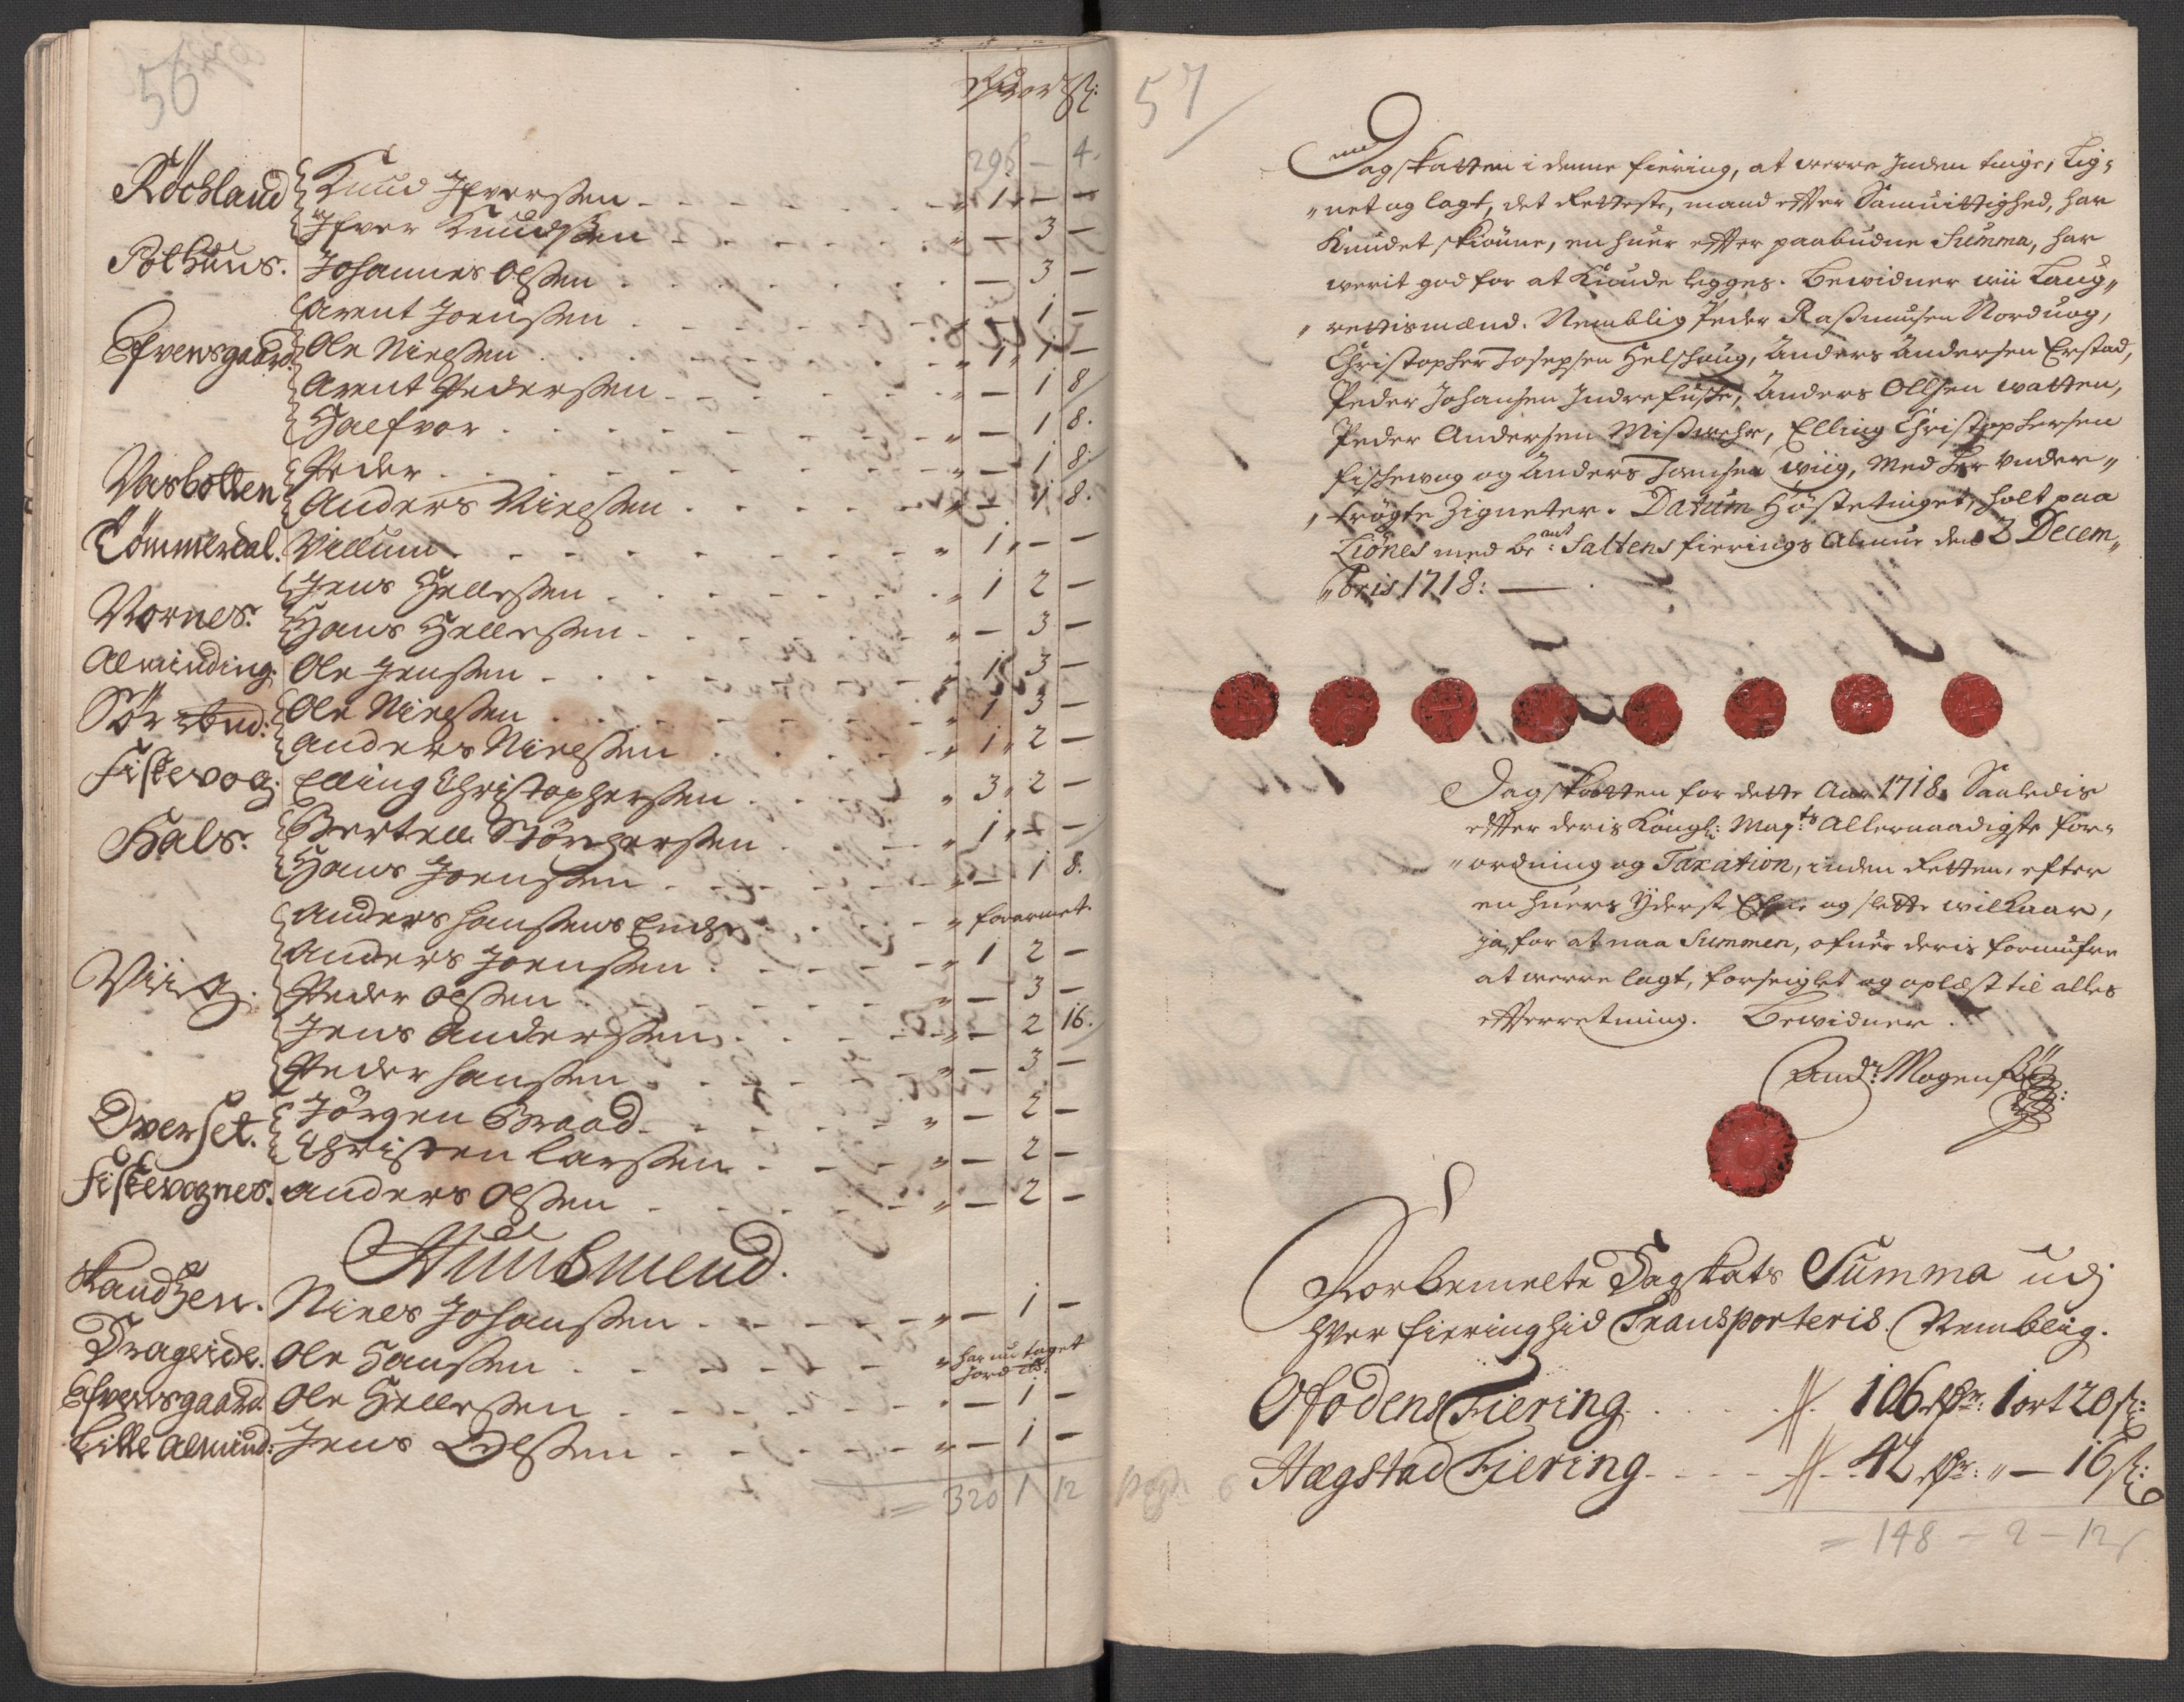 56
Rdr ort ſk:
296 – 4.
Röchland Knud Ifverßen „ 1 „ – –
Ifver Knudßen „ – 3 –
Polhuus. Johannes Olßen – 3 –
Arent Jonßen „ – 1 –
Efvensgaard Ole Nielßen „ 1 „ 1 –
Arent Pederßen „ – 1 8
Halfvor „ – 1 8.
Vasbotten Peder „ – 1 8.
Anders Nielßen „ – 1 8.
Tömmerdal. Villum „ 1 „ – –
Jens Hellesßen „ 1 2 –
Vornes. Hans Hellesßen „ – 3 –
Alminding. Ole Jenßen „ 1 3 –
Sör Ole Nielßen „ 1 3 –
Anders Nielßen „ 1 „ 2 –
Fiskevog. Elling Christopherßen „ 3 „ 2 –
Hals. Bertell „ 1 „ – –
Hans Joenßen „ – 1 8.
Anders Hanßens Encke „ forarmet.
Viig. Anders Joenßen „ 1 2 –
Peder Olßen „ – 3 –
Jens Anderßen „ – 2 16.
Peder Hanßen „ – 3 –
Overset. Jörgen Braad „ – 2 –
Christen Larßen „ – 2 –
Fiskevognes. Anders Olßen „ – 2 –
Huusmend.
Niels Johanßen „ – 1 –
Drageide. Ole Hanßen „ har nu taget
Jord
Efvensgaard Ole Hellesßen – 1 –
Lille Almind: Jens Olßen „ – 1 –
= 320 1 12
57
Dagskatten i denne fiering, at werre Inden tinge, Lig,
„net og lagt, det Retteste, mand effter Samvittighed, har
Kundet skiönne, en huer effter paabudne Summa, har
werit god for at Kunde legges. Bewidner wii Laug„
„rettismænd. Nemblig Peder Raßmusen Norduog,
Christopher Josephsen Helshaug, Anders Andersen Erstad,
Peder Johansen Indre, Anders Ollsen watten,
Peder Andersen Mißwehr, Elling Christophersen
fischewog og Anders Joensen wiig, Med her Under„
„trögte Zigneter. Datum Höstetinget, holt paa
Liönes med bemt: Saltens fierings Almue den 2 Decem„
„bris 1718:
Dagskatten for dette Aar 1718. Saaledis
effter deris Kongl: Mayts: Allernaadigste for„
„ordning og Taxation, inden Retten, efter
en huers Yderste Efne og slette willkaar,
ja, for at naa Summen, ofuer deris formufne
at werre lagt, forseiglet og oplæst til alles
effterretning. Bewidner.
And: Mogensen
Forbemelte Dagskats Summa udj
hver fiering hid Transporteris. Nemblig.
Ofodens Fiering 106 Rdr: 1 ort 20 ſk:
Hægstad Fiering 42 Rdr: „ – 16 ſk:
= 148 – 2 – 12